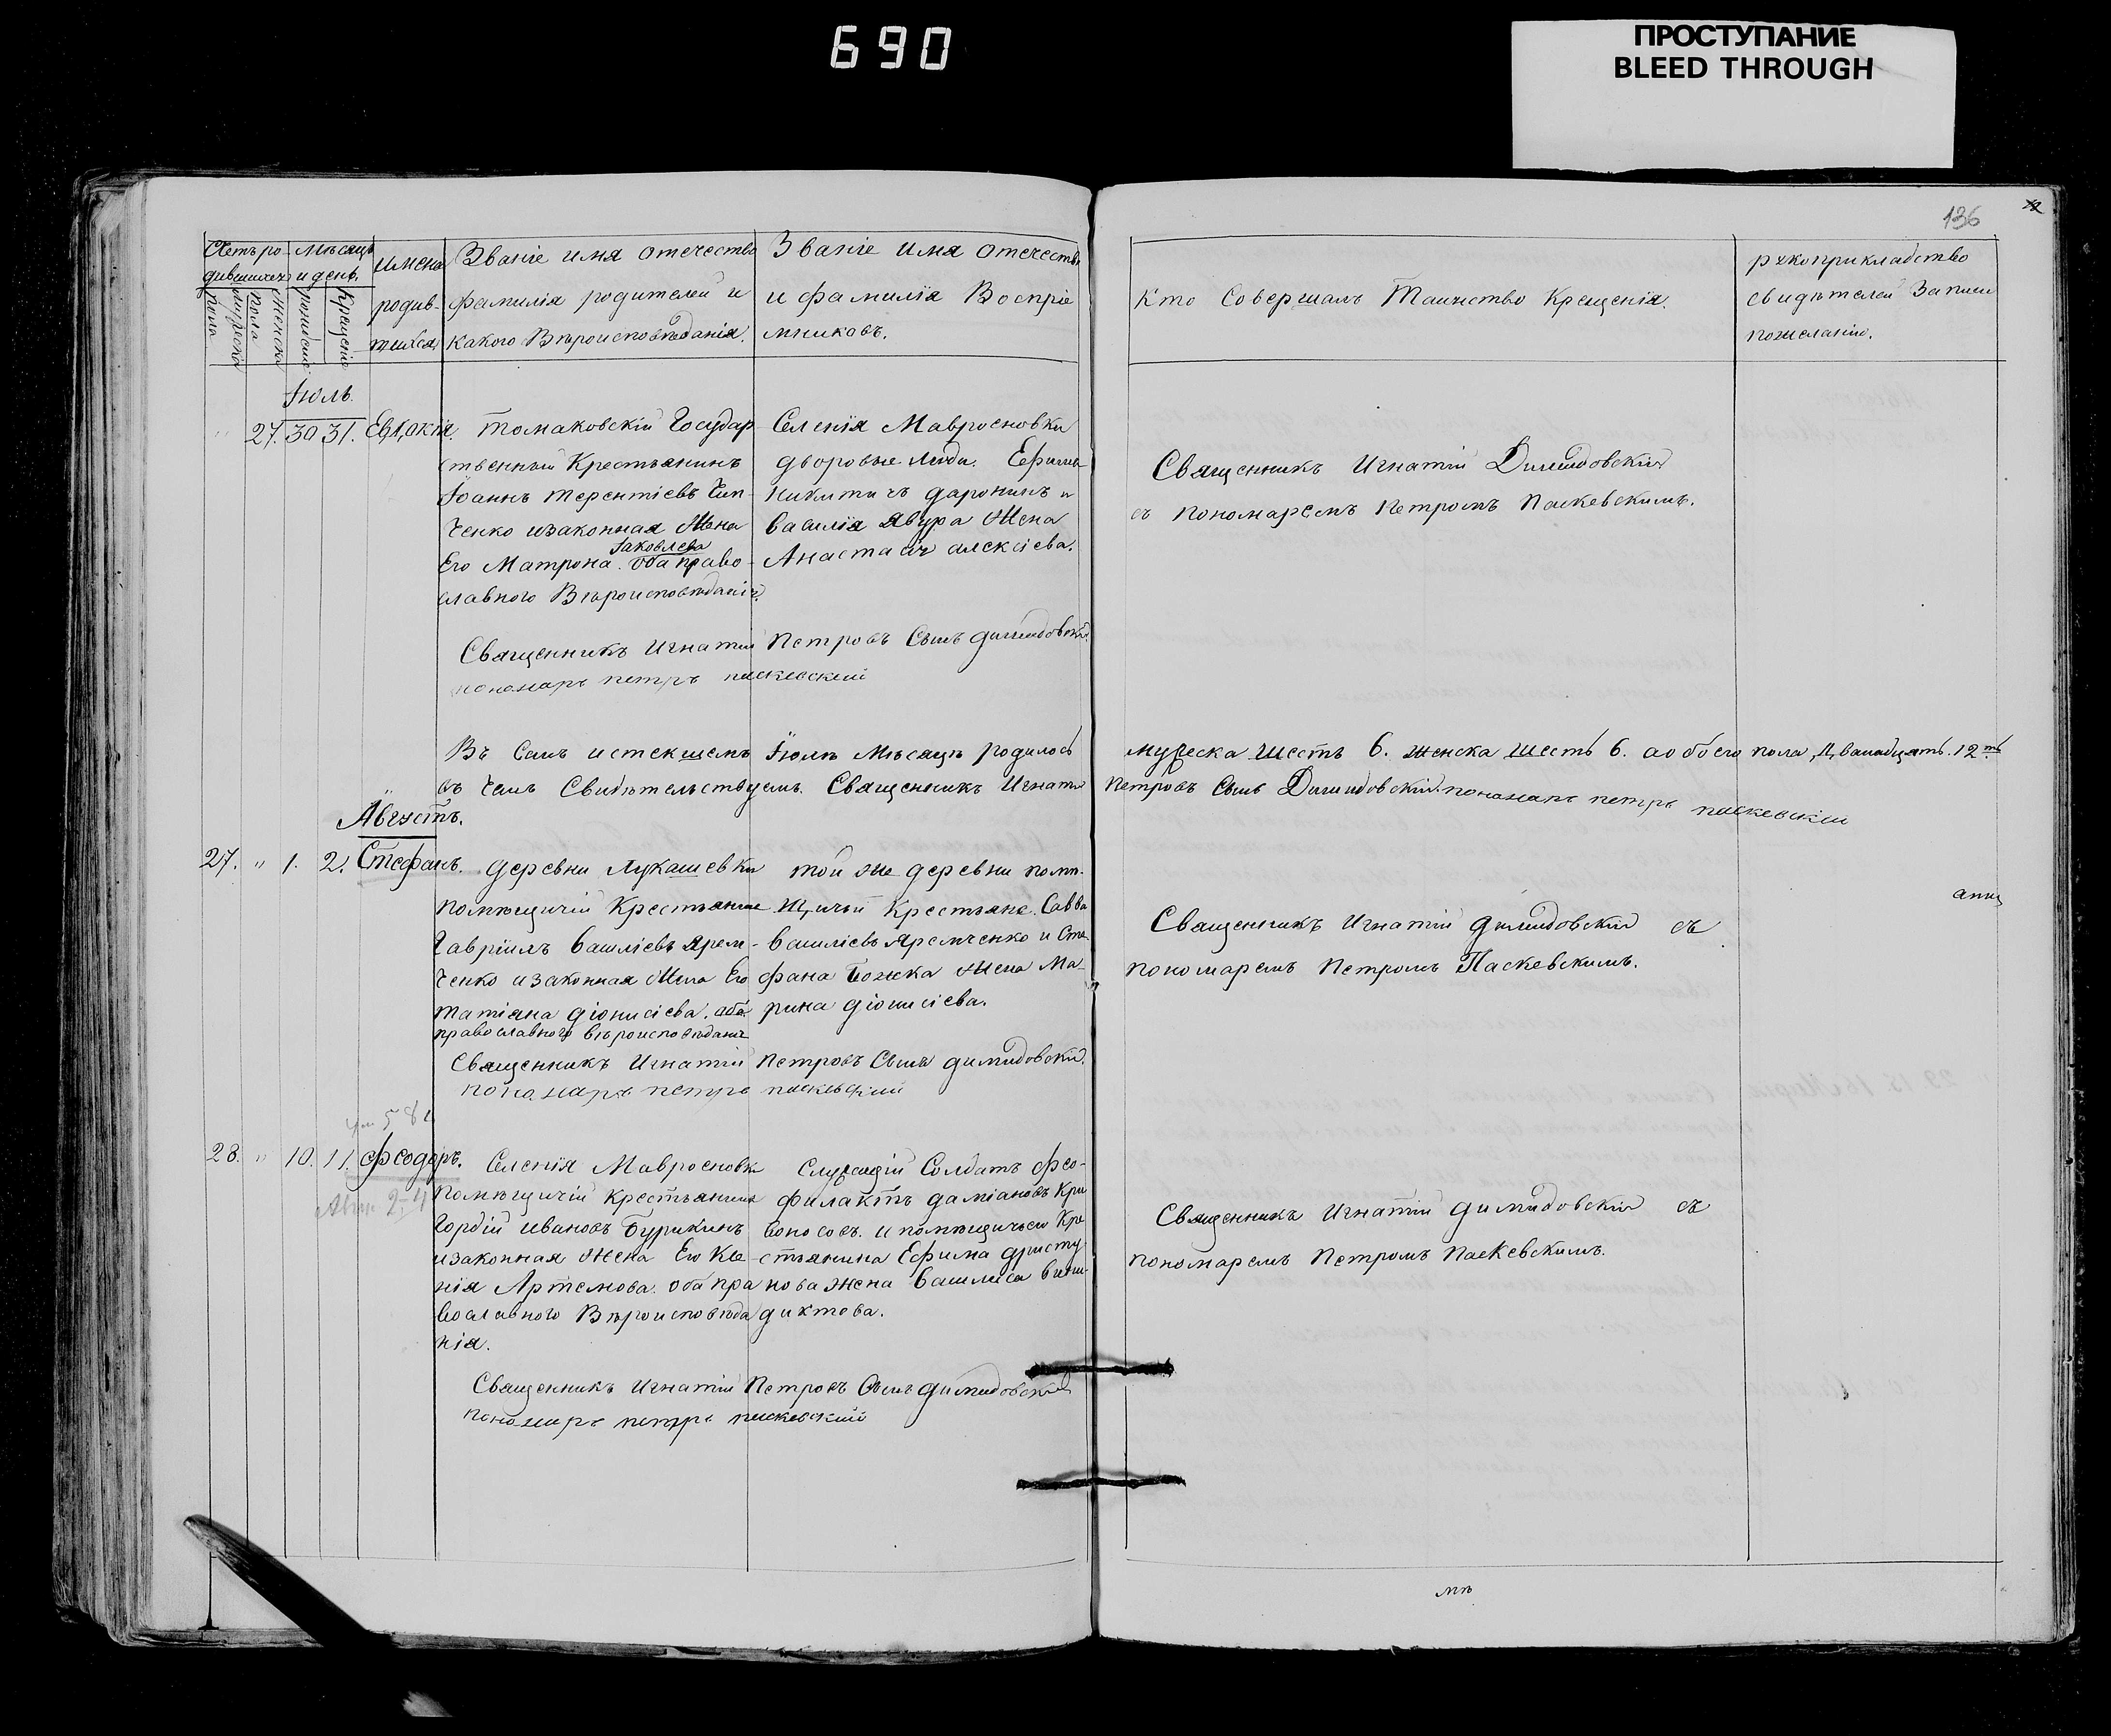 690
ПРОСТУПАНИЕ
BLEED THROUGH
136
Счетъ ро-
дившихся
Мѣсяцъ
и день
Мужеска
пола
Женска
пола
рожденія
Крещенія
имена
родив-
шихся
Званіе имя отечество
фамилія родителей и
какого Вѣроисповѣданія.
Званіе имя отечество
и фамилія Воспріе
мниковъ.
Кто Совершалъ Таинство Крещенія.
рукоприкладство
свидѣтелей Записи
пожеланію.
Іюль.
27. 30 31. Евдокія.
Томаковскій Государ
ственный Крестьянинъ
Іоаннъ Терентіевъ
ченко изаконная Жена
Яковлева
Его Матрона. оба право
славного Вѣроисповѣданія.
Селенія Мавроеновки
дворовые люди. Ефимъ
Никитичъ даронинъ и
василія явура Жена
Анастасія алексіева.
Священникъ Игнатій Димидовскій
съ пономаремъ Петромъ Паскевскимъ.
Священникъ Игнатій Петровъ Сынъ димидовскій.
пономарь петръ паскевскій
Въ Семъ истекшемъ Іюлѣ Мѣсяцѣ родилось мужеска шесть 6. женска шесть 6. а обоего пола, Дванадцять. 12.ть
въ чемъ Свидѣтельствуемъ. Священникъ Игнатій Петровъ Сынъ Димидовскій. пономарь петръ паскевскій
Августъ.
27. " 1. 2. Стефанъ.
деревни Лукашевки
помѣщичій Крестьянинъ
Гавріилъ василіевъ Ярем-
ченко изаконная Жена Его
татіана діонисіева. оба
православного вѣроисповѣданія
той же деревни помѣ-
щичьи Крестьяне. Савва
василіевъ Яремченко и Сте
фана Божка Жена Ма-
рина діонисіева.
Священникъ Игнатій димидовскій съ
пономаремъ Петромъ Паскевскимъ.
Священникъ Игнатій Петровъ Сынъ димидовскій.
пономарь петръ паскевскій
28. " 10. 11. Феодоръ.
Селенія Мавроеновк
помѣщичій крестьянинъ
Гордій ивановъ Бурикинъ
изаконная жена Его Ксе
нія Артемова. оба пра
вославного Вѣроисповѣда
нія.
Служащій Солдатъ Фео-
филактъ даміановъ Кри
воносовъ. и помѣщичьего Кре
стьянина Ефима
нова жена василиса вени-
диктова.
Священникъ Игнатій димидовскій съ
пономаремъ Петромъ Паскевскимъ.
Священникъ Игнатій Петровъ Сынъ димидовскій
пономарь петръ паскевскій